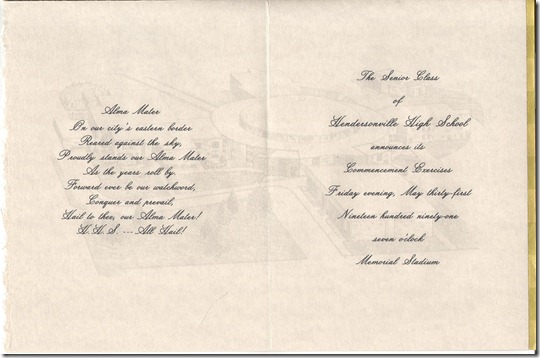 Alma Mater
On our city's eastern border
Reared against the sky,
Proudly stands our Alma Mater
As the years roll by.
Forward ever be our watchword,
Conquer and prevail,
Hail to thee, our Alma Mater!
H.H.S. ---All Hail!
The Senior Class
of
Hendersonville High School
announces its
Commencement Exercises
Friday evening, May thirty-first
Nineteen hundred ninety-one
seven o'clock
Memorial Stadium